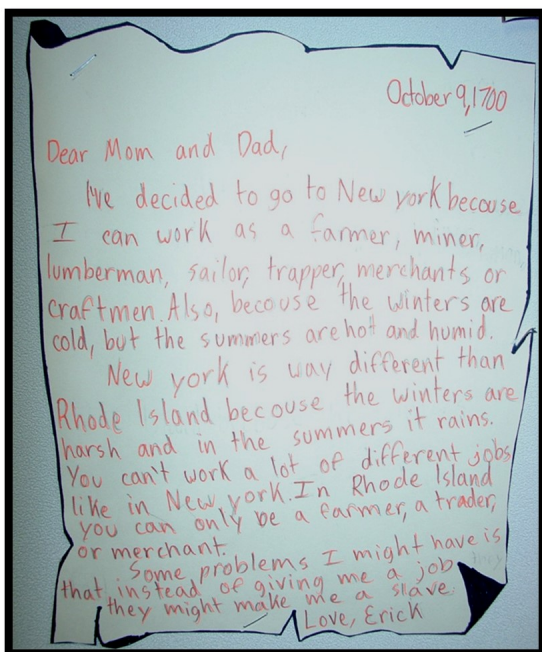 October 9, 1700
Dear Mom and Dad,
I've decided to go to New york becouse
I can work as a farmer, miner,
lumberman, sailor, trapper, merchants or
craftmen. Also, becouse the winters are
cold, but the summers are hot and humid.
New york is way different than
Rhode Island becouse the winters are
harsh and in the summers it rains.
You can't work a lot of different jobs
like in New york. In Rhode Island
you can only be a farmer, a trader,
or merchant.
Some problems I might have is
that instead of giving me a job they
they might make me a slave
Love, Erick